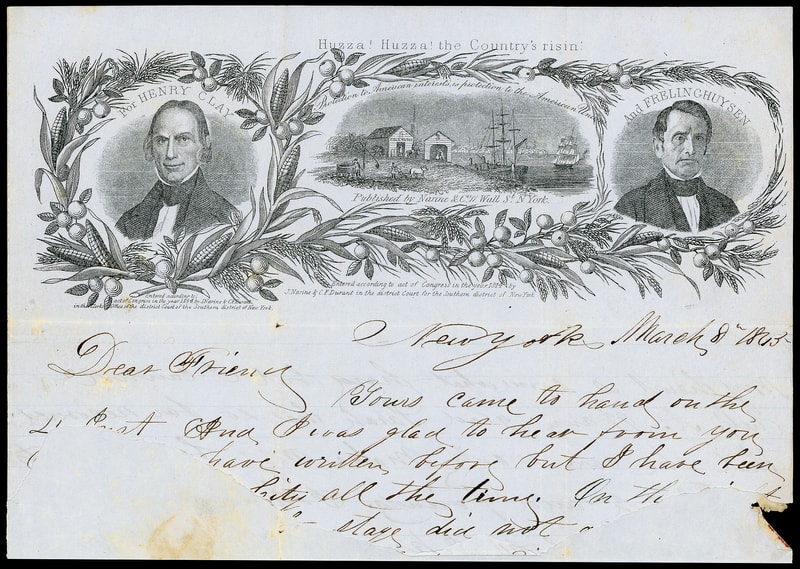 Huzza! Huzza! the Country's risin'
For HENRY CLAY
Protection to American interests, is protection to the American
And FRELINGHUYSEN
Published by Narine & Co. 11 Wall St. N York.
Entered according to
act of Congress in the year 1844 by J. Narine & C.F. Durant
in the Clerk's Office of the district Court of the Southern district of New York.
Entered according to act of Congress in the year 1844 by
J. Narine & C.F. Durant in the district Court for the Southern district of New York
New York March 8th
Dear Friend
Yours came to hand on the
And I was glad to hear from you
have written before but I have been
all the time. On
stage did not